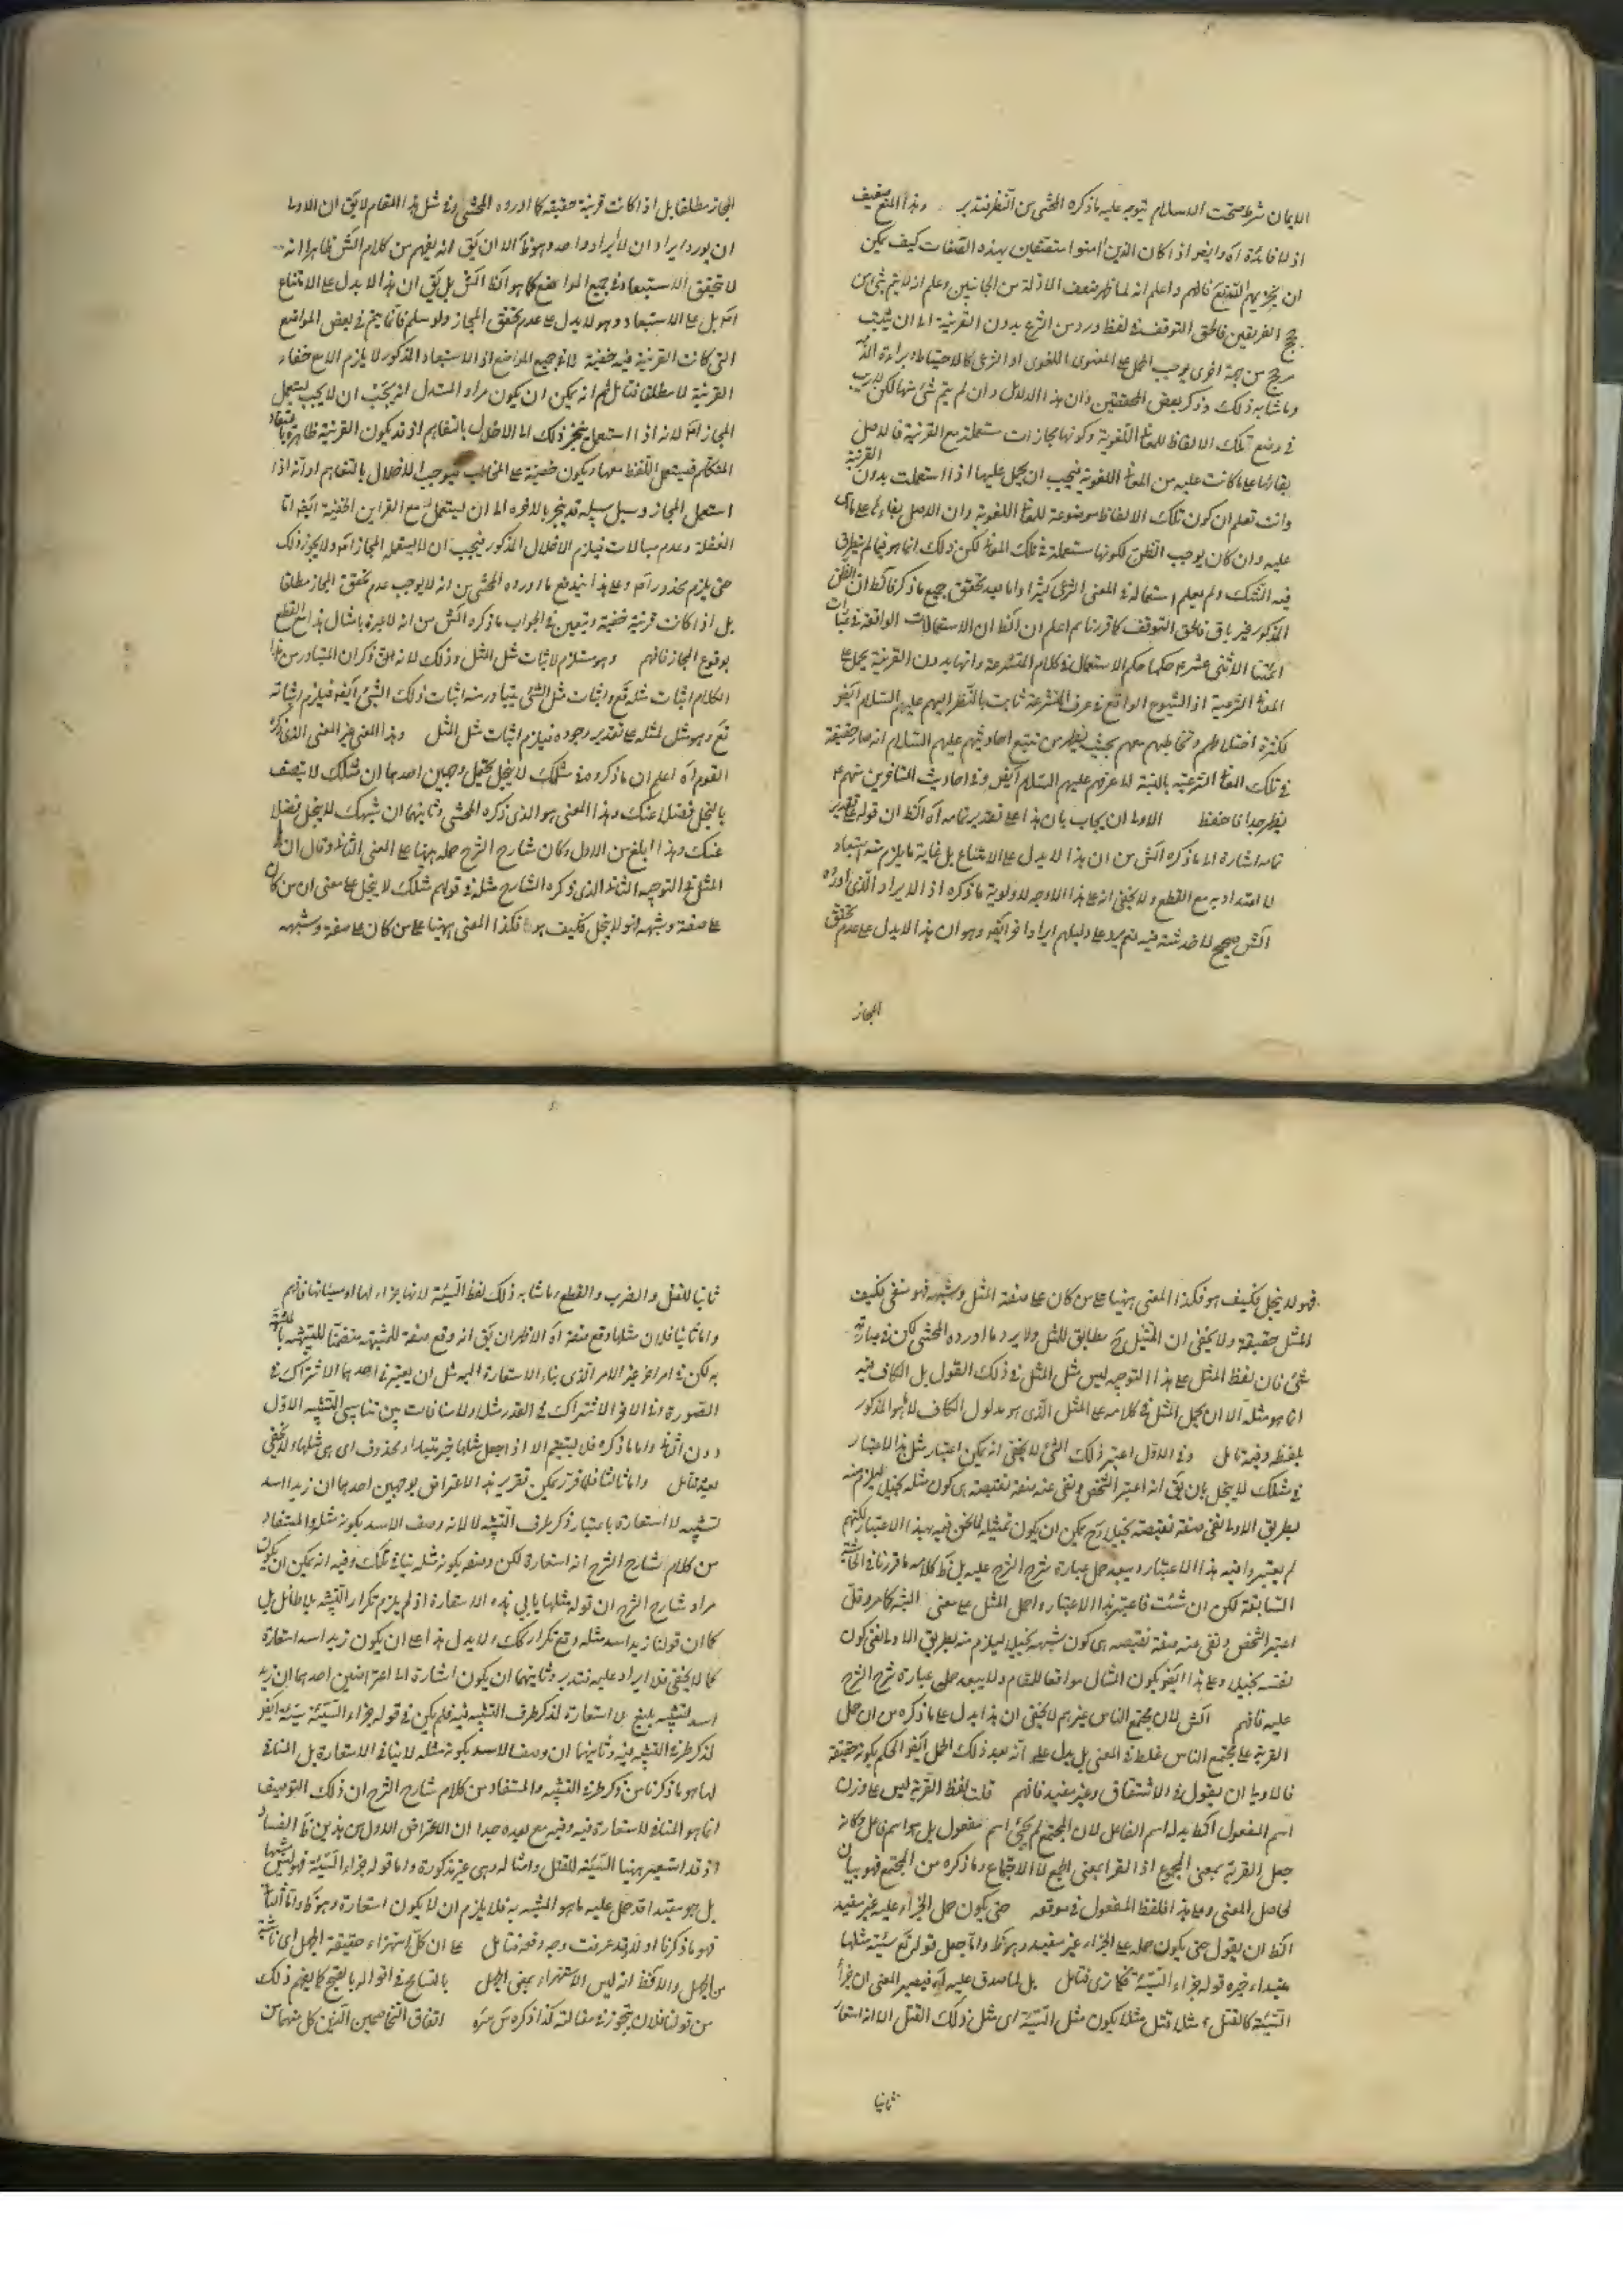 الايمان شرط صحت الاسلام يتوجه عليه ما ذكره المحشى من النظر فتدبر وهذا المنع ضعيف
اذ لا فائدة اه وايضا اذا كان الذين امنوا متصفين بهذه الصفات كيف يمكن
ان يخزيهم الله تع فافهم واعلم انه لما ظهر ضعف الادلة من الجانبين وعلم انه لا يتم شئ من
حجج الفريقين فالحق التوقف فى لفظ ورد من الشرع بدون القرينة الا ان يثبت
مرجح من جهة اخرى يوجب الحمل على المعنى اللغوى او الشرعى كالاحتياط وبراءة الذمة
وما شابه ذلك وذكر بعض المحققين ان هذه الدلائل وان لم يتم شئ منها لكن لا ريب
فى وضع تلك الالفاظ للمعانى اللغوية وكونها مجازات مستعملة مع القرينة فالاصل
بقاؤها على ما كانت عليه من المعانى اللغوية فيجب ان يحمل عليها اذا استعملت بدون القرينة
وانت تعلم ان كون تلك الالفاظ موضوعة للمعانى اللغوية وان الاصل بقاءها على ما هى
عليه وان كان يوجب الظن لكونها مستعملة فى تلك المعانى لكن ذلك انما هو فيما لم يتطرق
فيه الشك ولم يعلم استعماله فى المعنى الشرعى كثيرا واما بعد تحقق جميع ما ذكرنا فالظ ان الظن
المذكور غير باق فالحق التوقف كما قررنا ثم اعلم ان الظ ان الاستعمالات الواقعة فى عبارات
ائمتنا الاثنى عشر ع حكمها حكم الاستعمال فى كلام المتشرعة وانها بدون القرينة يحمل على
المعانى الشرعية اذ الشيوع الواقع فى عرف المتشرعة ثابت بالنظر اليهم عليهم السلام ايضا
لكثرة اختلاطهم وتخاطبهم معهم بحيث يظهر من تتبع احاديثهم عليهم السلام انه صار حقيقة
فى تلك المعانى الشرعية بالنسبة الى عرفهم عليهم السلام ايضا وفى احاديث المتاخرين منهم ع
يظهر جدا فاحفظ الاولى ان يجاب بان هذا على تقدير تمامه اه الظ ان قوله على تقدير
تمامه اشارة الى ما ذكره الش من ان هذا لا يدل على الامتناع بل غاية ما يلزم منه استبعاد
لا اعتداد به مع القطع ولا يخفى انه على هذا لا وجه لاولوية ما ذكره اذ الايراد الذى اورده
الش صحيح لا خدشة فيه نعم يرد على دليلهم ايراد اخر ايضا وهو ان هذا لا يدل على عدم تحقق
المجاز
المجاز مطلقا بل اذا كانت قرينة خفية كما اورده المحشى وفى مثل هذا المقام لا يق ان الاولى
ان يورد ايراد ان لا ايراد واحد وهو ظ الا ان يق انه يفهم من كلام الش ظاهرا انه
لا تحقق الاستبعاد فى جميع المواضع كما هو الظ الش بل يق ان هذا لا يدل على الامتناع
اصلا بل على الاستبعاد وهو لا يدل على عدم تحقق المجاز ولو سلم فانما يتم فى بعض المواضع
التى كانت القرينة فيه خفية لا فى جميع المواضع اذ الاستبعاد المذكور لا يلزم الا مع خفاء
القرينة لا مطلقا فتامل ثم انه يمكن ان يكون مراد المستدل انه يجب ان لا يجب يستعمل
المجاز اصلا لانه اذا استعمل ينجر ذلك الى الاخلال بالتفاهم اذ قد يكون القرينة ظاهرة باعتقاد
المتكلم فيستعمل اللفظ معها ويكون خفية على المخاطب فيوجب الاخلال بالتفاهم او انه اذا
استعمل المجاز وسبل سبيله قد ينجر بالاخرة الى ان يستعمل مع القراين الخفية ايضا اما
الغفلة وعدم مبالات فيلزم الاخلال المذكور فيجب ان لا يستعمل المجاز اصلا ولا يجوز ذلك
حتى يلزم محذور اصلا وعلى هذا يندفع ما اورده المحشى من انه لا يوجب عدم تحقق المجاز مطلقا
بل اذا كانت قرينة خفية ويتعين فى الجواب ما ذكره الش من انه لا عبرة بامثال هذا مع القطع
بوقوع المجاز فافهم وهو مستلزم لاثبات مثل المثل وذلك لانه على ذكر ان المتبادر من هذا
الكلام اثبات مثله تع واثبات مثل الشئ يتبادر منه اثبات ذلك الشئ ايضا فيلزم اثباته
تع وهو مثل لمثله على تقدير وجوده فيلزم اثبات مثل المثل وهذا المعنى غير المعنى الذى ذكره
القوم اه اعلم ان ما ذكروه فى مثلك لا يبخل يحتمل وجهين احدهما ان مثلك لا يتصف
بالبخل فضلا عنك وهذا المعنى هو الذى ذكره المحشى وثانيهما ان شبهك لا يبخل فضلا
عنك وهذا ابلغ من الاول وكان شارح الشرح حمله ههنا على المعنى الثانى وقال ان
المثل فى التوجيه الثانى الذى ذكره الشارح مثله فى قولهم مثلك لا يبخل على معنى ان من كان
على صفة وشبهه فهو لا يبخل فكيف هو فكذا المعنى ههنا على من كان على صفة وشبهه
فهو لا يبخل فكيف هو فكذا المعنى ههنا على من كان على صفة المثل وشبهه فهو منفى فكيف
المثل حقيقة ولا يخفى ان المثيل ح مطابق للمثل ولا يرد ما اورده المحشى لكن فى عبارته
شئ فان لفظ المثل على هذا التوجيه ليس مثل المثل فى ذلك القول بل الكاف فيه
انما هو مثله الا ان يحمل المثل فى كلامه على المثل الذى هو مدلول الكاف لا هو المذكور
بلفظه وفيه تامل وفى الاول اعتبر ذلك الشئ لا يخفى انه يمكن اعتبار مثل هذا الاعتبار
فى مثلك لا يبخل بان يق انه اعتبر الشخص ونفى عنه صفة نقيصة هى كون مثله بخيل ليلزم منه
بطريق الاولى نفى صفة نقيصة بخيل وح يمكن ان يكون تمثيله لما نحن فيه بهذا الاعتبار لكنهم
لم يعتبروا فيه هذا الاعتبار ويبعد حمل عبارة شرح الشرح عليه بل ظ كلامه ما قررنا فى الحاشية
السابقة لكن ان شئت فاعتبر هذا الاعتبار واحمل المثل على معنى الشبه كما مر وقل
اعتبر الشخص ونفى عنه صفة نقيصة هى كون شبهه بخيل ليلزم منه بطريق الاولى نفى كون
نفسه بخيل وعلى هذا ايضا يكون المثال موافقا للمقام ولا يبعد حمل عبارة شرح الشرح
عليه فافهم الش لان مجتمع الناس غيرهم لا يخفى ان هذا يدل على ما ذكره من ان حمل
القرية على مجتمع الناس غلط فى المعنى بل يدل على انه بعد ذلك الحمل ايضا الحكم بكونه حقيقة
فالاولى ان يقول فى الاشتقاق وغير مفيد فافهم قلت لفظ القرية ليس على وزن
اسم المفعول الظ بدله اسم الفاعل لان المجتمع لم يجئ اسم مفعول بل هو اسم فاعل وكانه
جعل القرية بمعنى المجموع اذ القرا بمعنى الجمع لا الاجتماع وما ذكره من المجتمع فهو بيان
لحاصل المعنى وعلى هذا فلفظ المفعول فى موقعه حتى يكون حمل الجزاء عليه غير مفيد
الظ ان يقول حتى يكون حمله على الجزاء غير مفيد وهو ظ واما جعل قوله تع سيئة مثلها
مبتداء خبره قوله جزاء السيئة فكما ترى فتامل بل لما صدق عليه انه فيصير المعنى ان جزاء
السيئة كالقتل مثلا قتل مثلا يكون مثل السيئة اى مثل ذلك القتل الا انه استعار
ثانيا
ثانيا للقتل والضرب والقطع وما شابه ذلك لفظ السيئة لانها جزاء لها او سيئاتها فافهم
واما ثانيا فلان مثلها وقع صفة اه الاظهر ان يق انه وقع صفة للمشبه متضمنا للتشبيه بالمشبه
به لكن فى امر اخر غير الامر الذى بناء الاستعارة اليه مثل ان يعتبر فى احدهما الاشتراك فى
الصورة وفى الاخر الاشتراك فى القدر مثلا ولا منافات بين تناسى التشبيه الاول
دون الثانى واما ما ذكره فلا يستقيم الا اذا جعل مثلها خبر مبتداء محذوف اى هى مثلها ولا يخفى
بعده فتامل واما ثالثا فلما قرر يمكن تقرير هذا الاعتراض بوجهين احدهما ان زيد اسد
تشبيه لا استعارة باعتبار ذكر طرف التشبيه لا لانه وصف الاسد بكونه مثله والمستفاد
من كلام شارح الشرح انه استعارة لكن وصفه بكونه مثله ينافى ذلك وفيه انه يمكن ان يكون
مراد شارح الشرح ان قوله مثلها يابى هذه الاستعارة اذ لم يلزم تكرار التشبيه بلا طائل بل
كما ان قولنا زيد اسد مثله وقع تكرار ركيك ولا يدل هذا على ان يكون زيد اسد استعارة
كما لا يخفى فلا ايراد عليه فتدبر وثانيهما ان يكون اشارة الى اعتراضين احدهما ان زيد
اسد لتشبيه بليغ لا استعارة لذكر طرف التشبيه فيه فلم يكن فى قوله جزاء السيئة سيئة ايضا
لذكر طرفى التشبيه فيه وثانيهما ان وصف الاسد بكونه مثله لا ينافى الاستعارة بل المنافى
لها هو ما ذكرنا من ذكر طرفى التشبيه والمستفاد من كلام شارح الشرح ان ذلك التوصيف
انما هو المنافى للاستعارة فيه وفيه مع بعده جدا ان الاعتراض الاول من هذين ظ الفساد
اذ قد استعير ههنا السيئة للقتل وامثاله وهى غير مذكورة واما قوله جزاء السيئة فهو ليس مشبها
بل هو مبتدا قد حمل عليه ما هو المشبه به فلا يلزم ان لا يكون استعارة وهو ظ واما الثانى
فهو ما ذكرنا اولا وقد عرفت وجه دفعه فتامل على ان كل استهزاء حقيقة الجهل اى ناشية
من الجهل والا فظ انه ليس الاستهزاء بمعنى الجهل بالتسامح فى اقواله بالقبيح كما يفهم ذلك
من قولنا فلان يتجوز فى مقالته كذا ذكره س سره اتفاق المتخاصمين الذين كل منهما من